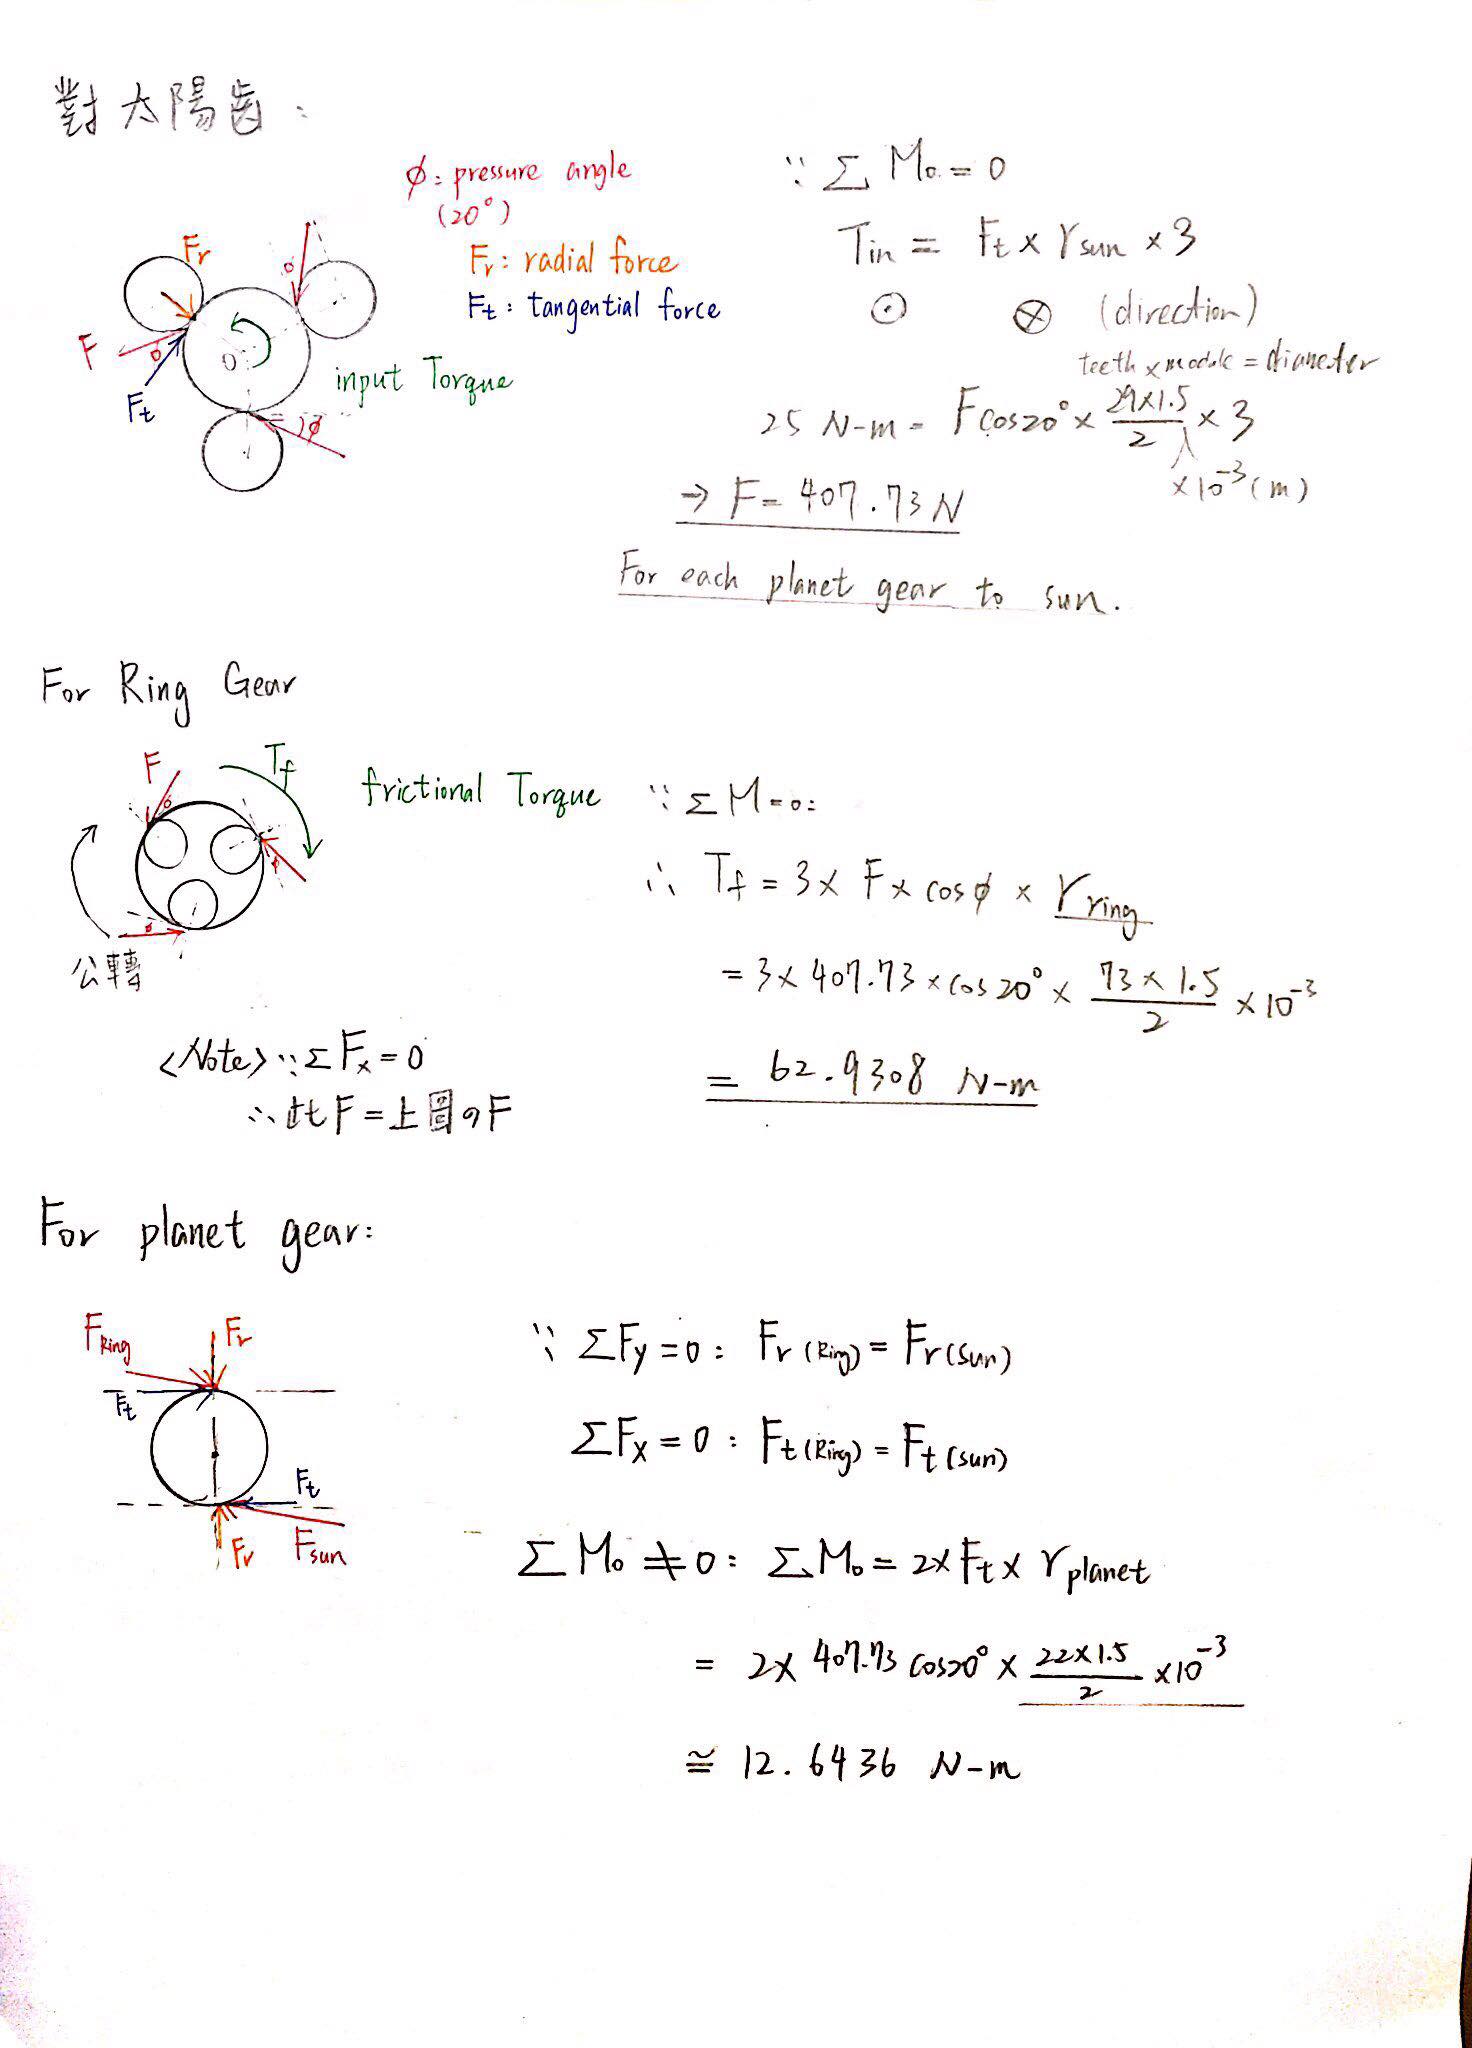 對太陽齒:
φ: pressure angle
(20°)
Fr: radial force
Ft: tangential force
Fr
φ
F
φ
O
Ft
input Torque
φ
∵ Σ Mo = 0
Tin = Ft × rsun × 3
⊙ ⊗ (direction)
teeth × module = diameter
25 N-m = Fcos20° × 29×1.5/2 × 3
×10⁻³ (m)
→ F = 407.73 N
For each planet gear to sun.
For Ring Gear
F
φ
Tf
frictional Torque
φ
φ
公轉
∵ Σ M = 0:
∴ Tf = 3 × F × cosφ × rring
= 3 × 407.73 × cos20° × 73×1.5/2 × 10⁻³
= 62.9308 N-m
<Note> ∵ Σ Fx = 0
∴ 此F = 上圖のF
For planet gear:
FRing
Fr
Ft
Ft
Fr
Fsun
∵ ΣFy = 0: Fr(Ring) = Fr(sun)
ΣFx = 0: Ft(Ring) = Ft(sun)
Σ Mo ≠ 0: Σ Mo = 2 × Ft × rplanet
= 2 × 407.73 cos20° × 22×1.5/2 × 10⁻³
≅ 12.6436 N-m